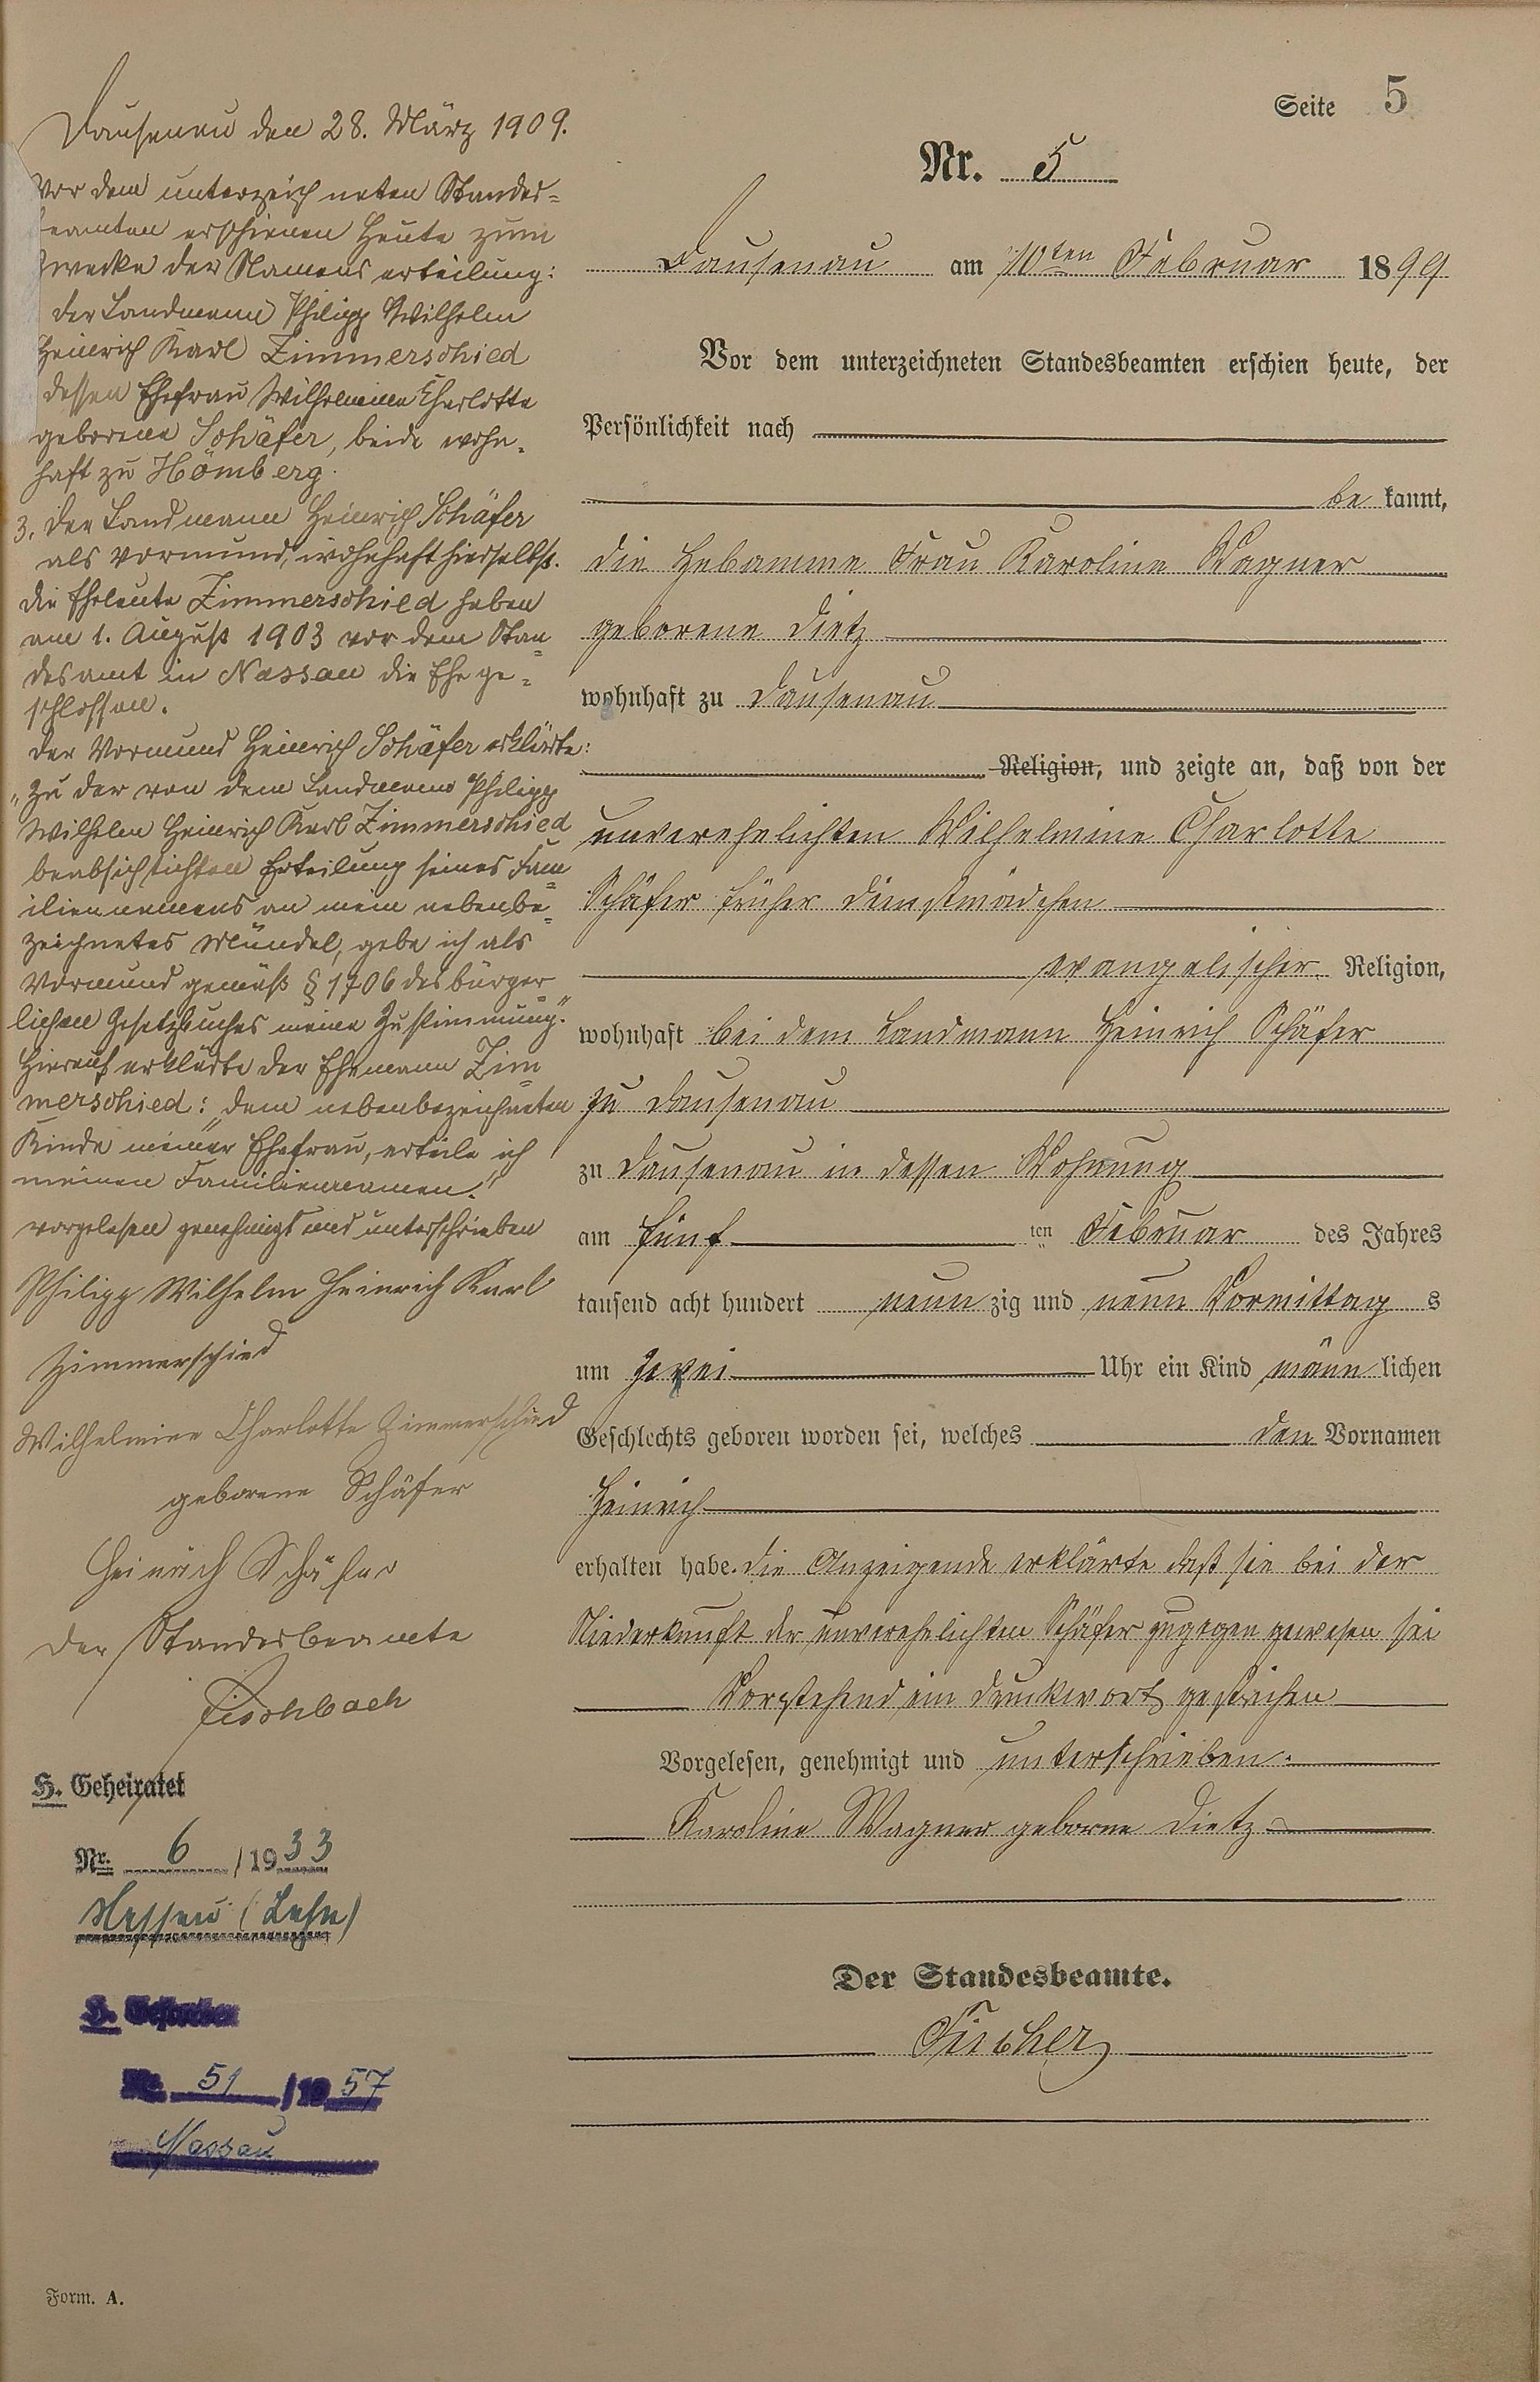 Seite 5
Nr. 5
Dausenau am 10ten Februar 1899
Vor dem unterzeichneten Standesbeamten erschien heute, der
Persönlichkeit nach
be kannt,
die Hebamme Frau Karoline Wagner
geborene Dietz
wohnhaft zu Dausenau
Religion, und zeigte an, daß von der
unverehelichten Wilhelmine Charlotte
Schäfer früher Dienstmädchen
evangelischer Religion,
wohnhaft bei dem Landmann Heinrich Schäfer
zu Dausenau
zu Dausenau in dessen Wohnung
am fünf ten Februar des Jahres
tausend acht hundert neun zig und neun Vormittag s
um zwei Uhr ein Kind männ lichen
Geschlechts geboren worden sei, welches den Vornamen
Heinrich
erhalten habe. Die Anzeigende erklärte daß sie bei der
Niederkunft der unverehelichten Schäfer zugegen gewesen sei
Vorstehend ein Druckwort gestrichen
Vorgelesen, genehmigt und unterschrieben.
Karoline Wagner geborne Dietz
Der Standesbeamte.
Fischer
Dausenau den 28. März 1909.
Vor dem unterzeichneten Standes=
beamten erschienen heute zum
Zwecke der Namenserteilung:
der Landmann Philipp Wilhelm
Heinrich Karl Zimmerschied
dessen Ehefrau Wilhelmine Charlotte
geborene Schäfer, beide wohn=
haft zu Hömberg.
3. der Landmann Heinrich Schäfer
als Vormund, wohnhaft hierselbst.
Die Eheleute Zimmerschied haben
am 1. August 1903 vor dem Stan=
desamt in Nassau die Ehe ge=
schlossen.
Der Vormund Heinrich Schäfer erklärte:
„Zu der von dem Landmann Philipp
Wilhelm Heinrich Karl Zimmerschied
beabsichtichten Erteilung seines Fam=
iliennamens an mein nebenbe=
zeichnetes Mündel, gebe ich als
Vormund gemäß § 1706 des bürger=
lichen Gesetzbuches meine Zustimmung."
Hierauf erklärte der Ehemann Zim=
merschied: „dem nebenbezeichneten
Kinde meiner Ehefrau, erteile ich
meinen Familiennamen."
vorgelesen genehmigt und unterschrieben
Philipp Wilhelm Heinrich Karl
Zimmerschied
Wilhelmine Charlotte Zimmerschied
geborene Schäfer
Heinrich Schäfer
Der Standesbeamte
Fischbach
H. Geheiratet
Nr. 6 /1933
Nassau (Lahn)
Nr. 51 /1957
Nassau
Form. A.